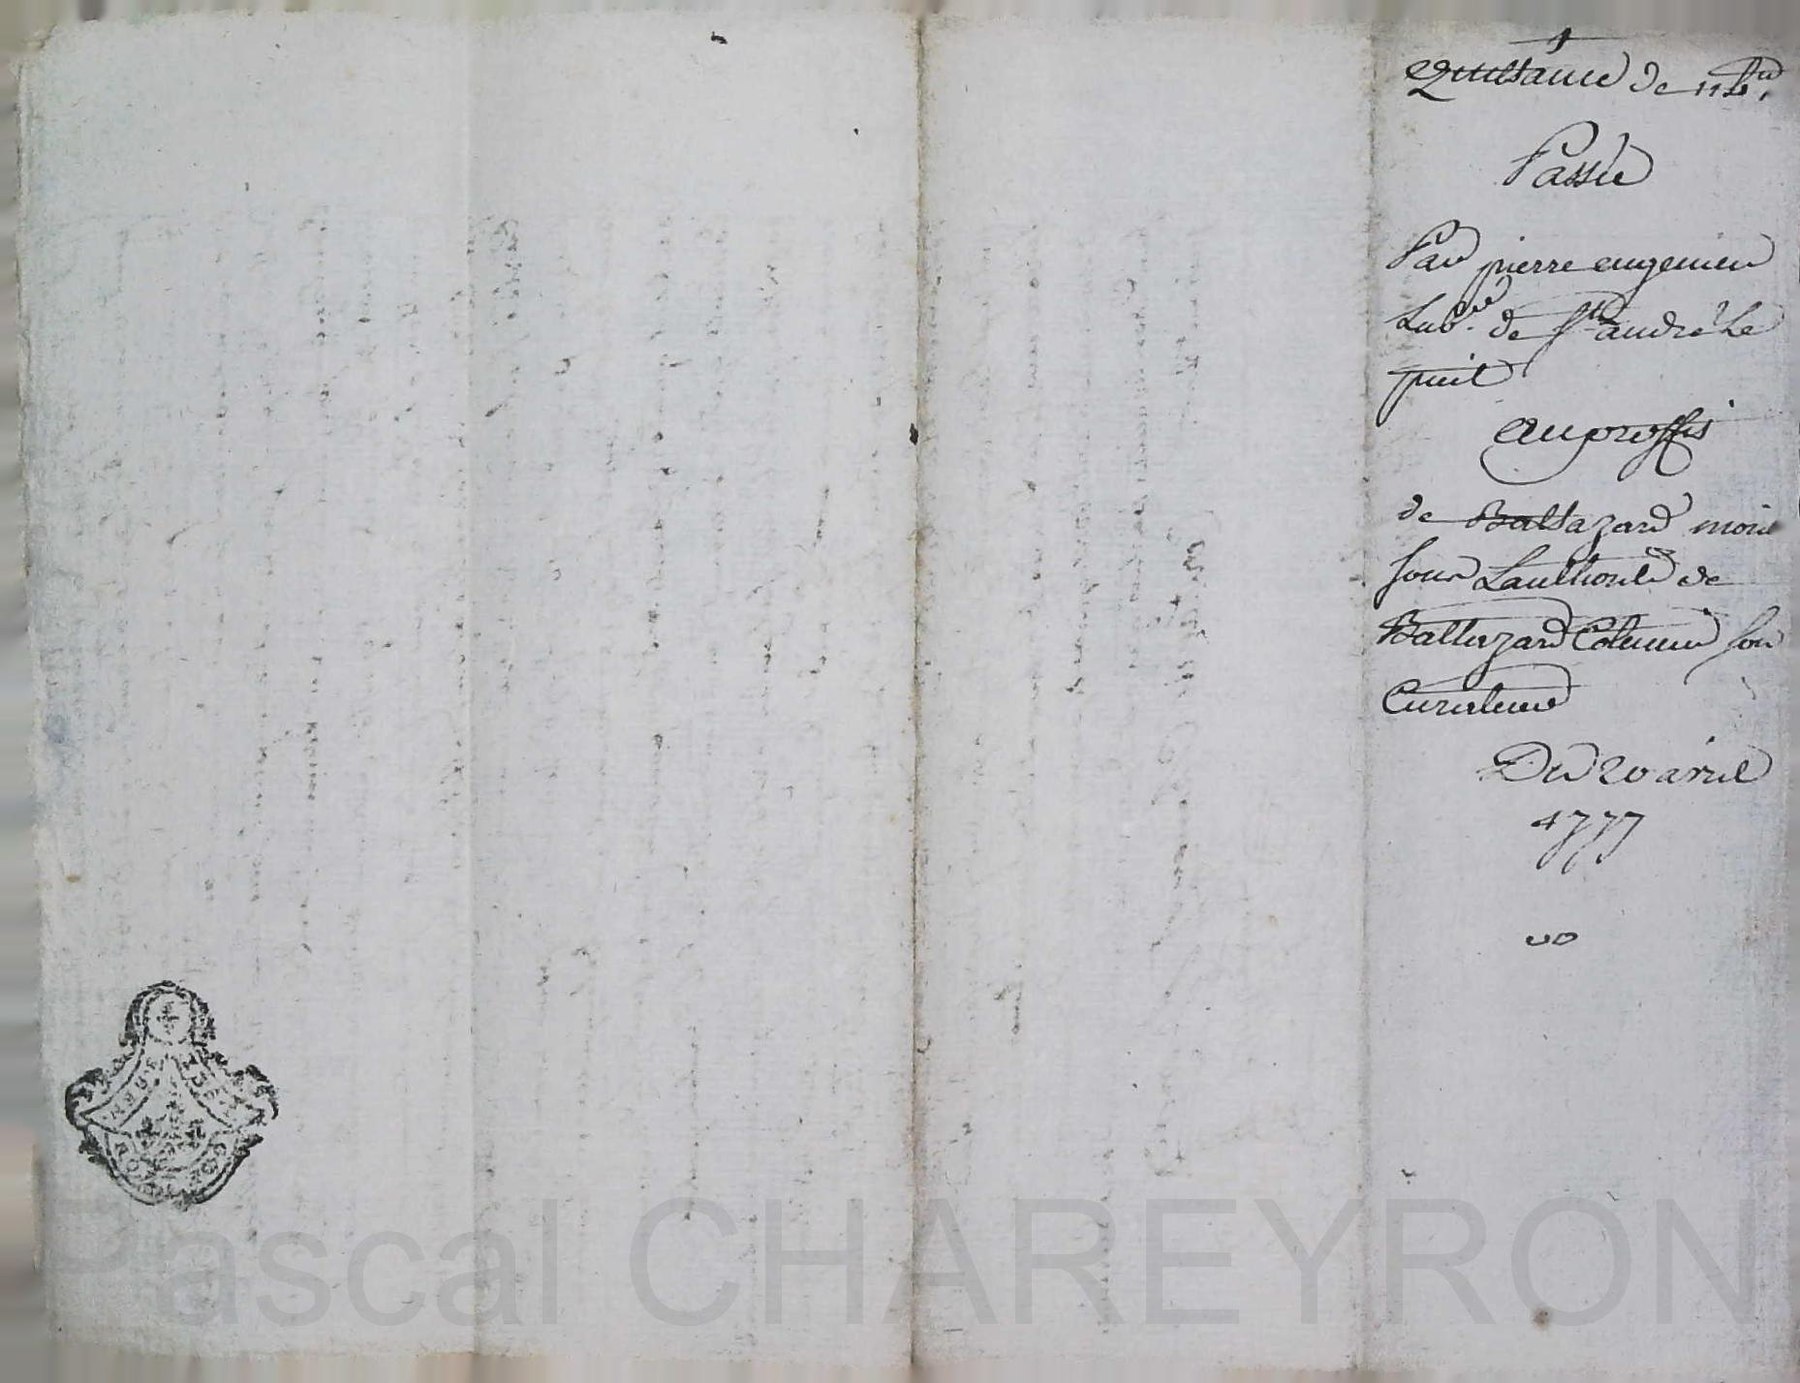 Quittance de 11 #
Passée
Par pierre eugenier
Lab.r de st andré Le
puit
Au proffis
de Baltazard
sous L'authorité de
Baltazard Colomer son
Curateur
Du 20 avril
1777
Pascal CHAREYRON